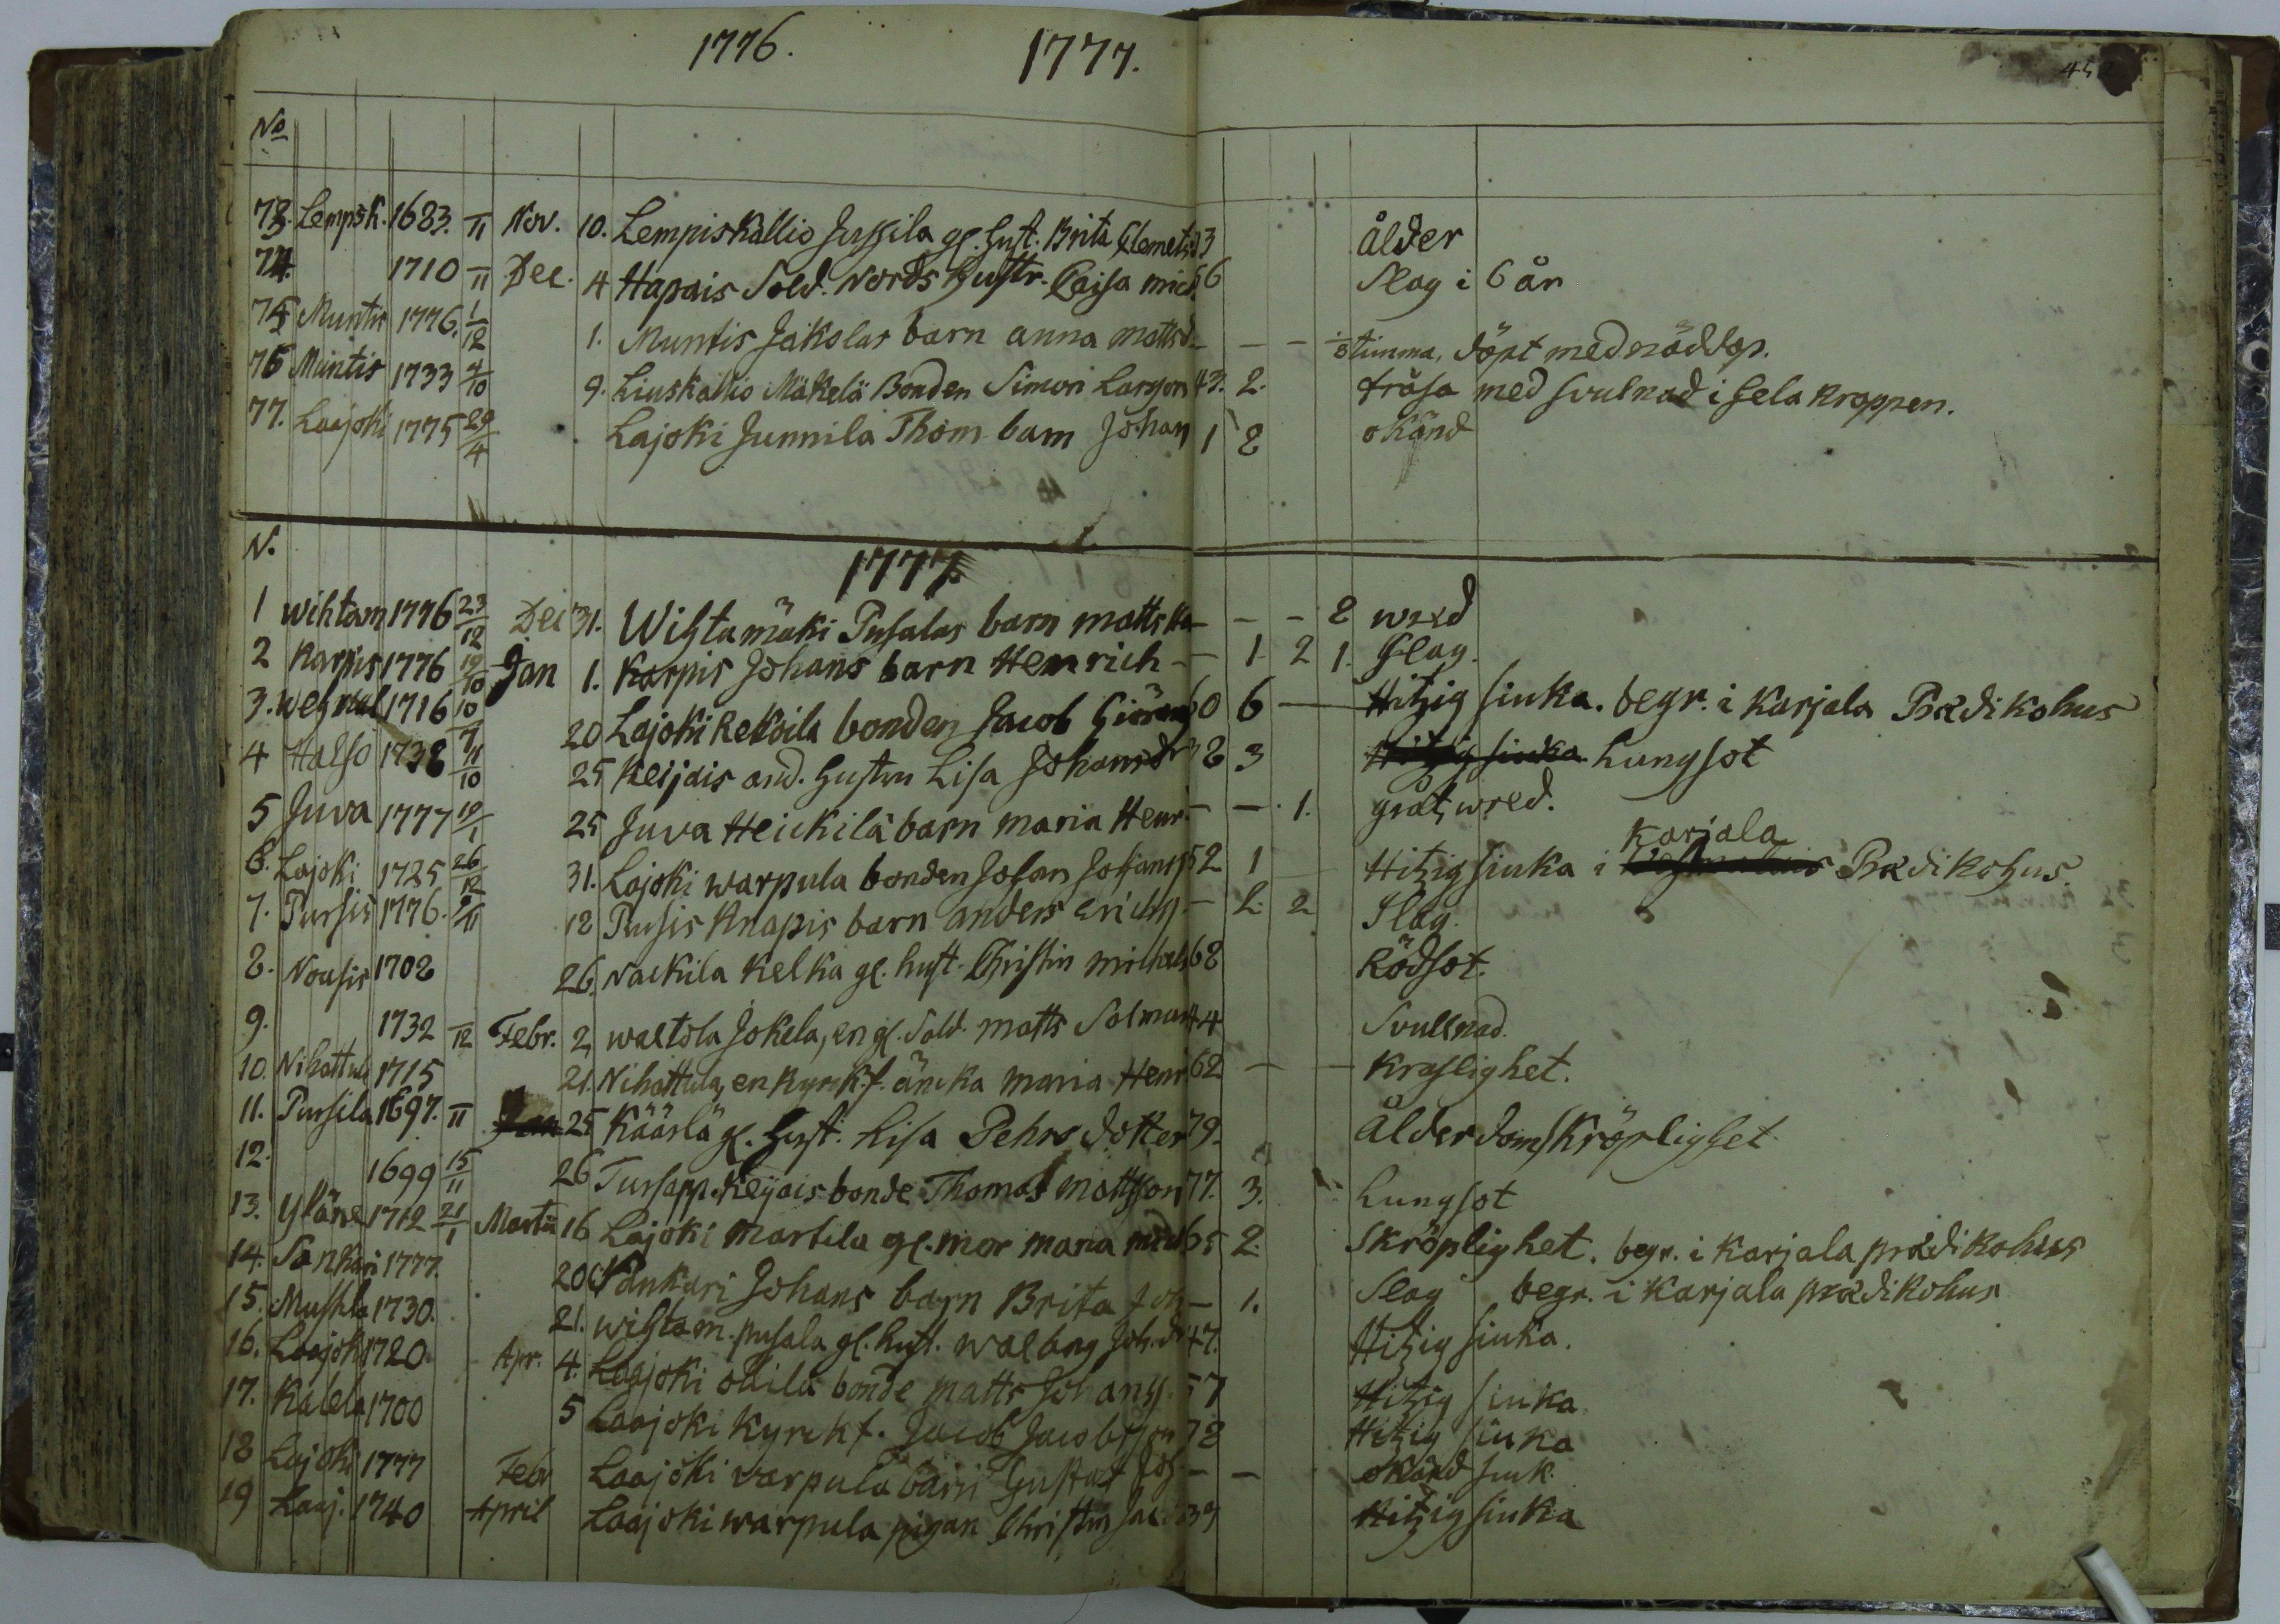 1776. 1777.
45
No
73. Lempisk. 1683. 11 Nov. 10. Lempiskallio Jussila gl. hust. Brita Clemets 93 ålder
74. 1710 11 Dec. 4 Hapais Sold. Nords hustr. Caisa mich. 66 Slag i 6 år
75 Muntis 1776. 1/12 1. Muntis Jakolas barn anna mattsd. - - - 1/8 timma, döpt med nöddop.
76 Muntis 1733 4/10 9. Liuskallio Mäkelä Bonden Simon Larsson 43. 2. fråsa med svulnad i hela kroppen.
77. Laajoki 1775 29/4 Lajoki Junnila Thom. barn Johan 1 8 okänd
N. 1777
1 Wihtam 1776 23/12 Dec 31. Wihtamäki Pusalas barn matts - - - 8 wred
2 Karpis 1776 19/10 Jan 1. Karpis Johans barn Henrich - 1 2 1. Slag.
3. 1716 10/7 20 Lajoki Rekoila bonden Jacob 60 6 - Hitzig siuka. begr. i Karjala Prædikohus
4 Halso 1738 11/10 25 Keijais and. hustru Lisa Johansdr 38 3 Hitzig siuka Lungsot
5 Juva 1777 19/1 25 Juva Heickilä barn maria Henr. - - 1. gråt, wred.
6. Lajoki 1725 26/12 31. Lajoki warpula bonden Johan Johanss 52 1 Hitzig siuka i Karjala Prædikohus.
7. Pursis 1776. /11 12 Pusis Knapis barn anders erichs. - 2. 2 Slag.
8. Nousis 1708 26. Nackila Kelka gl. hust. Christin michels 68 Rödsot.
9. 1732 12 Febr. 2, waltola Jokela, en gl. Sold. matts Salman 44 Svullnad.
10. Nihattula 1715 21. Nihattula, en kyrck.f. äncka maria Henr 62 - - kraslighet.
11. Pursila 1697. 11 Jan 25 Kääslä gl. hust. Lisa Pehrs dotter 79. Ålderdoms skröplighet
12. 1699 15/11 26 Tursapp. Keijais bonde Thomas mattsson 77. 3. Lungsot
13. Yläne 1712 21/1 Martii 16 Lajoki Martila gl. mor maria 65 2. Skröplighet. begr. i Karjala prædikohus
14. Sankari 1777. 20 Sankari Johans barn Brita Joh - 1. Slag begr. i Karjala prædikohus
15. 1730. 21. wihtam. pusala gl. hust. walborg Joh.dr 47. Hitzig siuka.
16. Laajoki 1720 Apr. 4. Laajoki ollila bonde matts Johanss. 57 Hitzig siuka
17. Kalela 1700 5 Laajoki Kyrckf. Jacob Jacobsson 78 Hitzig siuka
18 Lajoki 1777 Febr Laajoki varpula barn Gustaf Joh - - okänd siuk.
19 Laaj. 1740 April Laajoki warpula pigan Christin Jac 39 Hitzig siuka